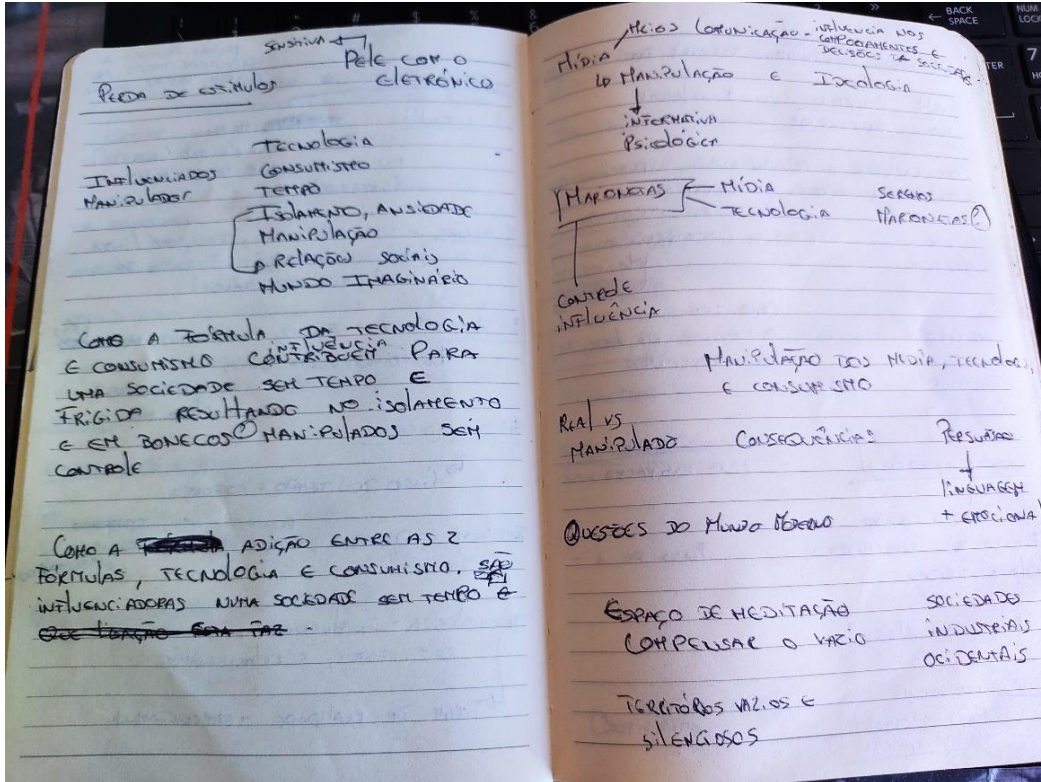 SENSITIVA
PELE COM O
ELETRÓNICO
PERDA DE ESTÍMULOS
TECNOLOGIA
INFLUENCIADOS CONSUMISMO
MANIPULADOS TEMPO
ISOLAMENTO, ANSIEDADE
MANIPULAÇÃO
RELAÇÕES SOCIAIS
MUNDO IMAGINÁRIO
COMO A FÓRMULA DA TECNOLOGIA
INFLUÊNCIA
E CONSUMISMO CONTRIBUEM PARA
UMA SOCIEDADE SEM TEMPO E
FRIGIDA RESULTANDO NO ISOLAMENTO
E EM BONECOS MANIPULADOS SEM
CONTROLE
COMO A ADIÇÃO ENTRE AS 2
FÓRMULAS, TECNOLOGIA E CONSUMISMO, SÃO
INFLUENCIADORAS NUMA SOCIEDADE SEM TEMPO E
MEIOS COMUNICAÇÃO - INFLUENCIA NOS
COMPORTAMENTOS E
DECISÕES DA SOCIEDADE
MÍDIA
MANIPULAÇÃO E IDEOLOGIA
INFORMATIVA
PSICOLÓGICA
MARONETAS MÍDIA SERMOS
TECNOLOGIA MARONETAS?
CONTROLE
INFLUÊNCIA
MANIPULAÇÃO DOS MEDIA, TECNOLOG,
E CONSUMISMO
REAL VS
MANIPULADO CONSEQUÊNCIAS PERSUASÃO
LINGUAGEM
+ EMOCIONAL
QUESTÕES DO MUNDO MODERNO
ESPAÇO DE MEDITAÇÃO SOCIEDADES
COMPENSAR O VAZIO INDUSTRIAIS
OCIDENTAIS
TERRITÓRIOS VAZIOS E
SILENCIOSOS
BACK
SPACE
NUM
LOCK
7